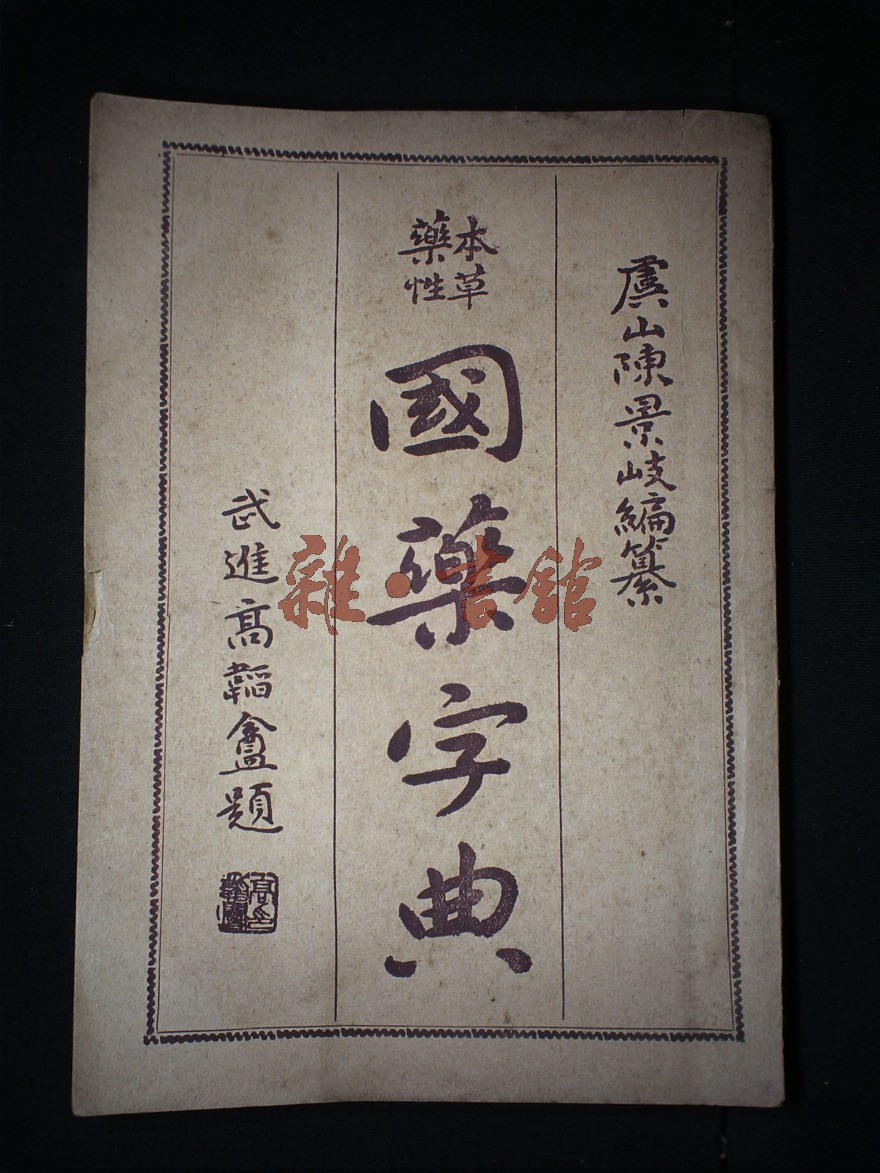 虞山陳景岐編纂
本草
藥性
國藥字典
武進高韜盦題
雜·書館